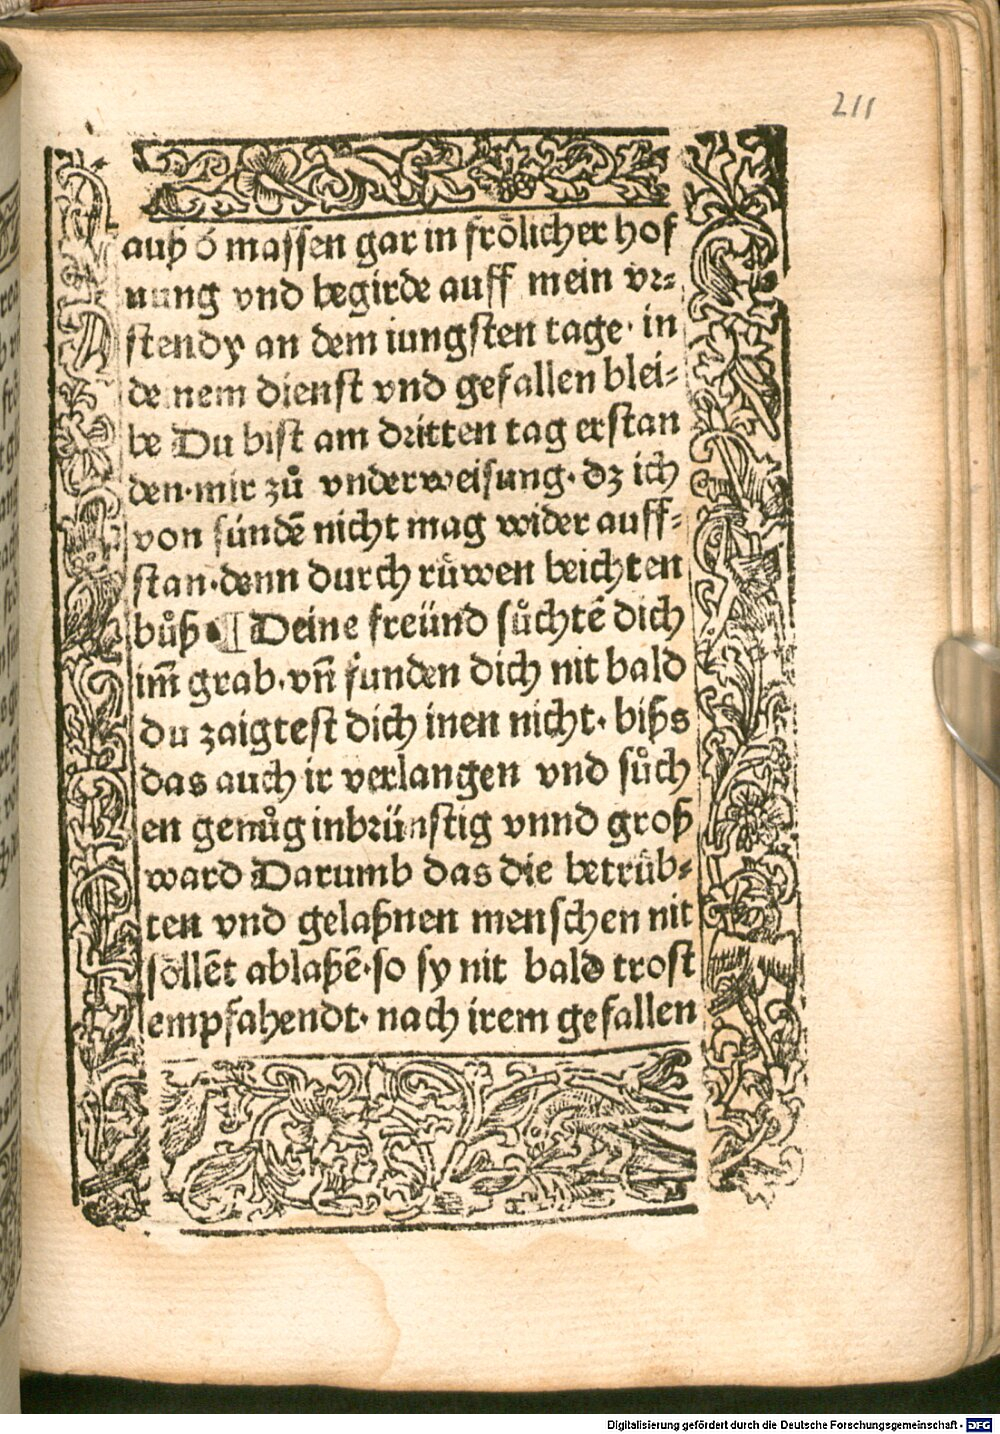 211
auß ó massen gar in frõlicher hof
nung vnd begirde auff mein vr⸗
stendy an dem iungsten tage· in
deinem dienst vnd gefallen blei⸗
be Du bist am dritten tag erstan
den·mir zů vnderweisung·dz ich
von súndẽ nicht mag wider auff⸗
stan·denn durch rüwen beichten
bůß ¶ Deine freünd sůchtẽ dich
im̃ grab·vñ funden dich nit bald
du zaigtest dich inen nicht· bißs
das auch ir verlangen vnd sůch
en genůg inbrünstig vnnd groß
ward Darumb das die betrüb⸗
ten vnd gelaßnen menschen nit
söllẽt ablaßẽ·so sy nit bald trost
empfahendt· nach irem gefallen
Digitalisierung gefördert durch die Deutsche Forschungsgemeinschaft - DFG